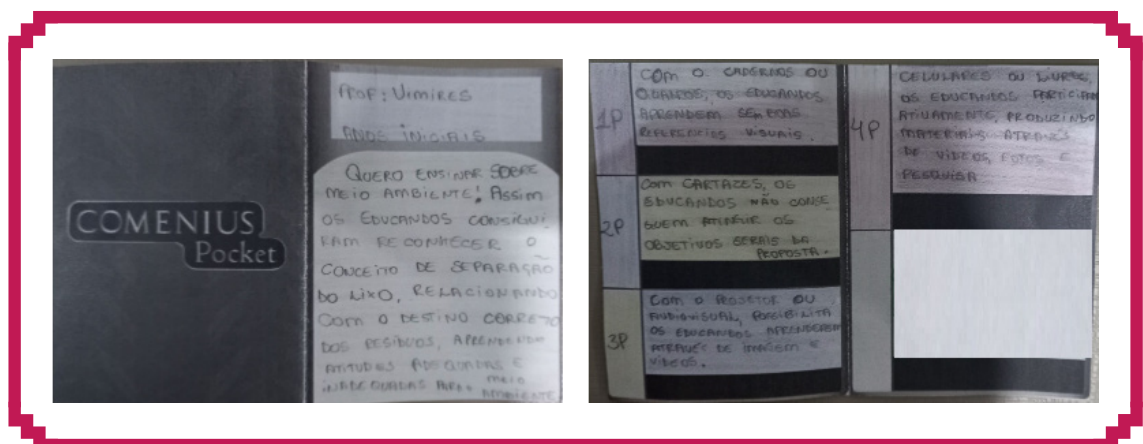 COMENIUS
Pocket
PROF: VIMIRES
ANOS INICIAIS
QUERO ENSINAR SOBRE
MEIO AMBIENTE! ASSIM
OS EDUCANDOS CONSIGUI
RAM RECONHECER O
CONCEITO DE SEPARAÇÃO
DO LIXO, RELACIONANDO
COM O DESTINO CORRETO
DOS RESÍDUOS, APRENDENDO
ATITUDES ADEQUADAS E
INADEQUADAS PARA O MEIO
AMBIENTE
1P
COM O CADERNOS OU
QUADROS, OS EDUCANDOS
APRENDEM SEM BOAS
REFERENCIAS VISUAIS.
2P
COM CARTAZES, OS
EDUCANDOS NÃO CONSE
GUEM ATINGIR OS
OBJETIVOS GERAIS DA
PROPOSTA.
3P
COM O PROJETOR OU
AUDIOVISUAL, POSSIBILITA
OS EDUCANDOS APRENDEREM
ATRAVÉS DE IMAGEM E
VÍDEOS.
4P
CELULARES OU LIVROS,
OS EDUCANDOS PARTICIPAM
ATIVAMENTE, PRODUZINDO
MATERIAIS ATRAVÉS
DE VÍDEOS, FOTOS E
PESQUISA